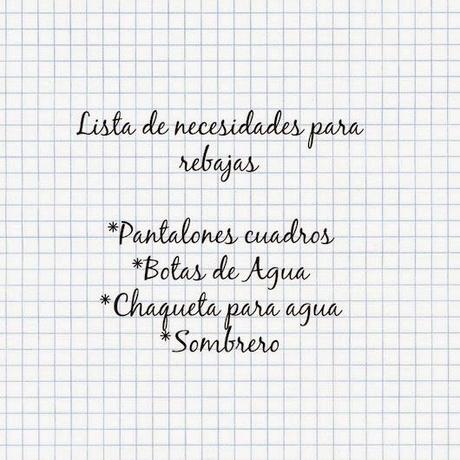 Lista de necesidades para
rebajas
*Pantalones cuadros
*Botas de Agua
*Chaqueta para agua
*Sombrero